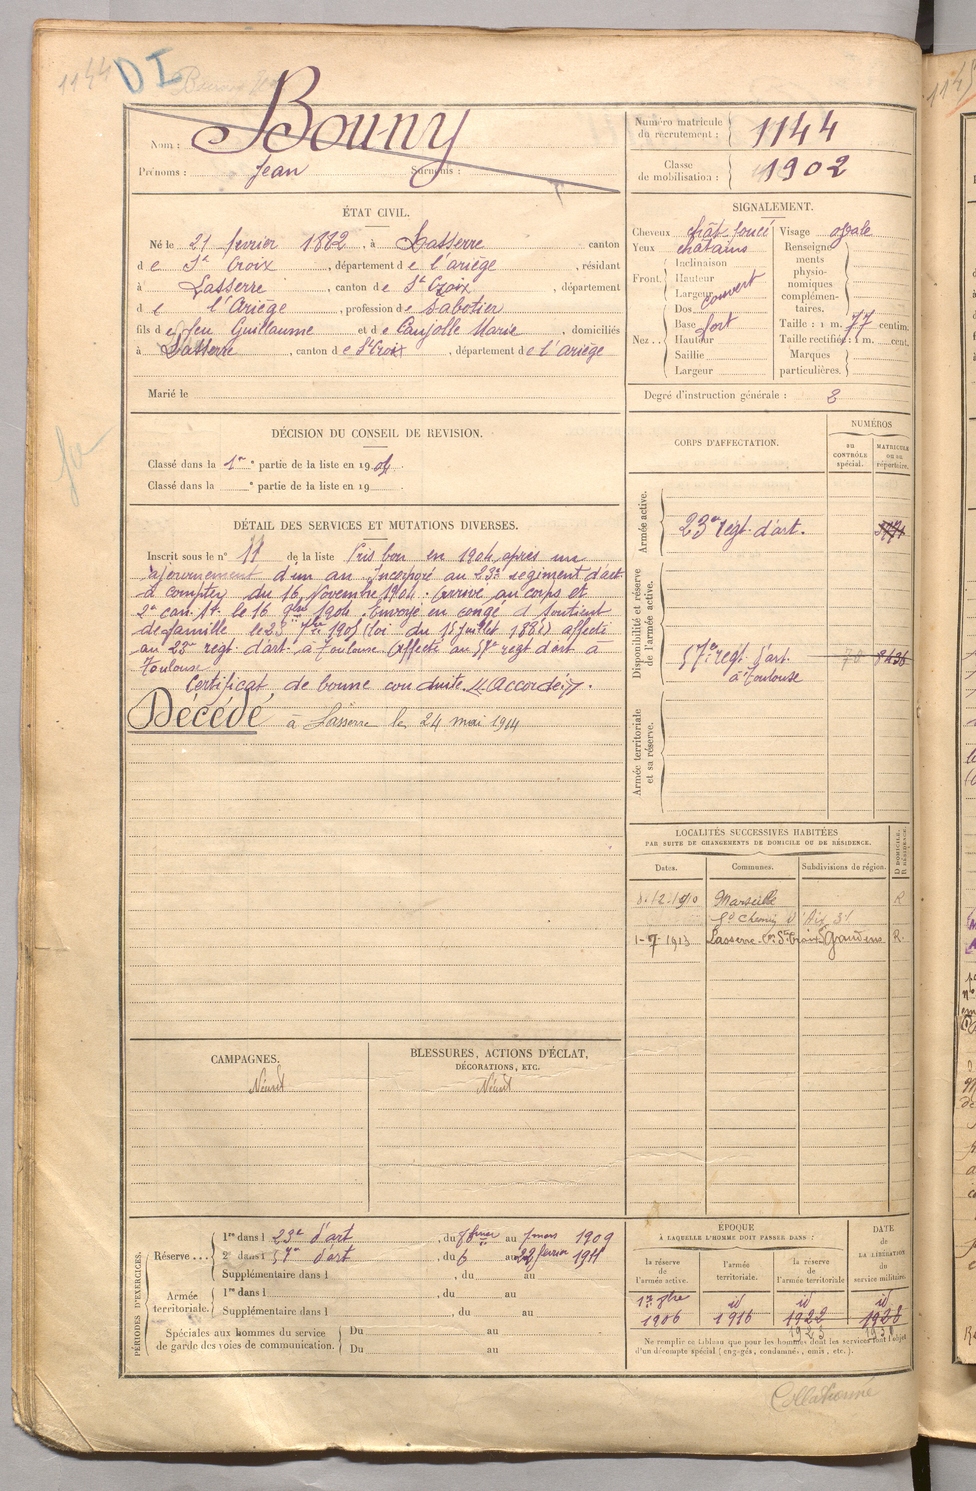 1144 D I
Nom : Bouny
Prénoms : Jean Surnoms :
Numéro matricule du recrutement : 1144
Classe de mobilisation : 1902
ÉTAT CIVIL.
Né le 21 février 1882, à Lasserre canton
de Ste Croix, département de l'ariège, résidant
à Lasserre, canton de Ste Croix, département
de l'Ariège, profession de Sabotier
fils de feu Guillaume et de Caujolle Marie, domiciliés
à Lasserre, canton de Ste Croix, département de l'ariège
Marié le
SIGNALEMENT.
Cheveux chât foncé
Yeux châtains
Front. Inclinaison
Hauteur
Largeur couvert
Nez... Dos
Base fort
Hauteur
Saillie
Largeur
Visage ovale
Renseignements physionomiques complémentaires.
Taille : 1 m. 77 centim.
Taille rectifiée : 1 m. cent.
Marques particulières.
Degré d'instruction générale : 2
DÉCISION DU CONSEIL DE REVISION.
Classé dans la 1re partie de la liste en 1904.
Classé dans la e partie de la liste en 19
DÉTAIL DES SERVICES ET MUTATIONS DIVERSES.
Inscrit sous le n° 11 de la liste Pris bon en 1904 après un
ajournement d'un an. Incorporé au 23e regiment d'art
à compter du 16 Novembre 1904. Arrivé au corps et
2e can. St. le 16 9bre 1904. Envoyé en congé soutient
de famille le 23 7bre 1905 (loi du 15 juillet 1889) affecté
au 23e regt d'art. à Toulouse Affecté au 57e regt d'art à
Toulouse
Certificat de bonne conduite "Accordé".
Décédé à Lasserre le 24 mai 1914
CORPS D'AFFECTATION.
NUMÉROS
au CONTRÔLE spécial.
MATRICULE ou au répertoire.
Armée active.
23e regt d'art.
Disponibilité et réserve de l'armée active.
57e regt d'art. 70 8436
à Toulouse
Armée territoriale et sa réserve.
LOCALITÉS SUCCESSIVES HABITÉES
PAR SUITE DE CHANGEMENTS DE DOMICILE OU DE RÉSIDENCE.
D DOMICILE. R RÉSIDENCE.
Dates. Communes. Subdivisions de région.
8.12.1910 Marseille R
Gd Chemin d'Aix 31
1-7-1913 Lasserre. Con Ste Croix St Gaudens R.
CAMPAGNES.
Néant
BLESSURES, ACTIONS D'ÉCLAT,
DÉCORATIONS, ETC.
Néant
PÉRIODES D'EXERCICES.
Réserve... 1re dans l 23e d'art, du 7 février au 7 mars 1909
2e dans l 57e d'art, du 6 au 22 février 1911
Supplémentaire dans l , du au
Armée territoriale. 1re dans l , du au
Supplémentaire dans l , du au
Spéciales aux hommes du service Du au
de garde des voies de communication. Du au
ÉPOQUE
À LAQUELLE L'HOMME DOIT PASSER DANS :
DATE DE LA LIBÉRATION du service militaire.
la réserve de l'armée active.
l'armée territoriale.
la réserve de l'armée territoriale
1er 9bre id id id
1906 1916 1922 1928
1923 1930
Ne remplir ce tableau que pour les hommes dont les services font l'objet
d'un décompte spécial (engagés, condamnés, omis, etc.).
Collationné